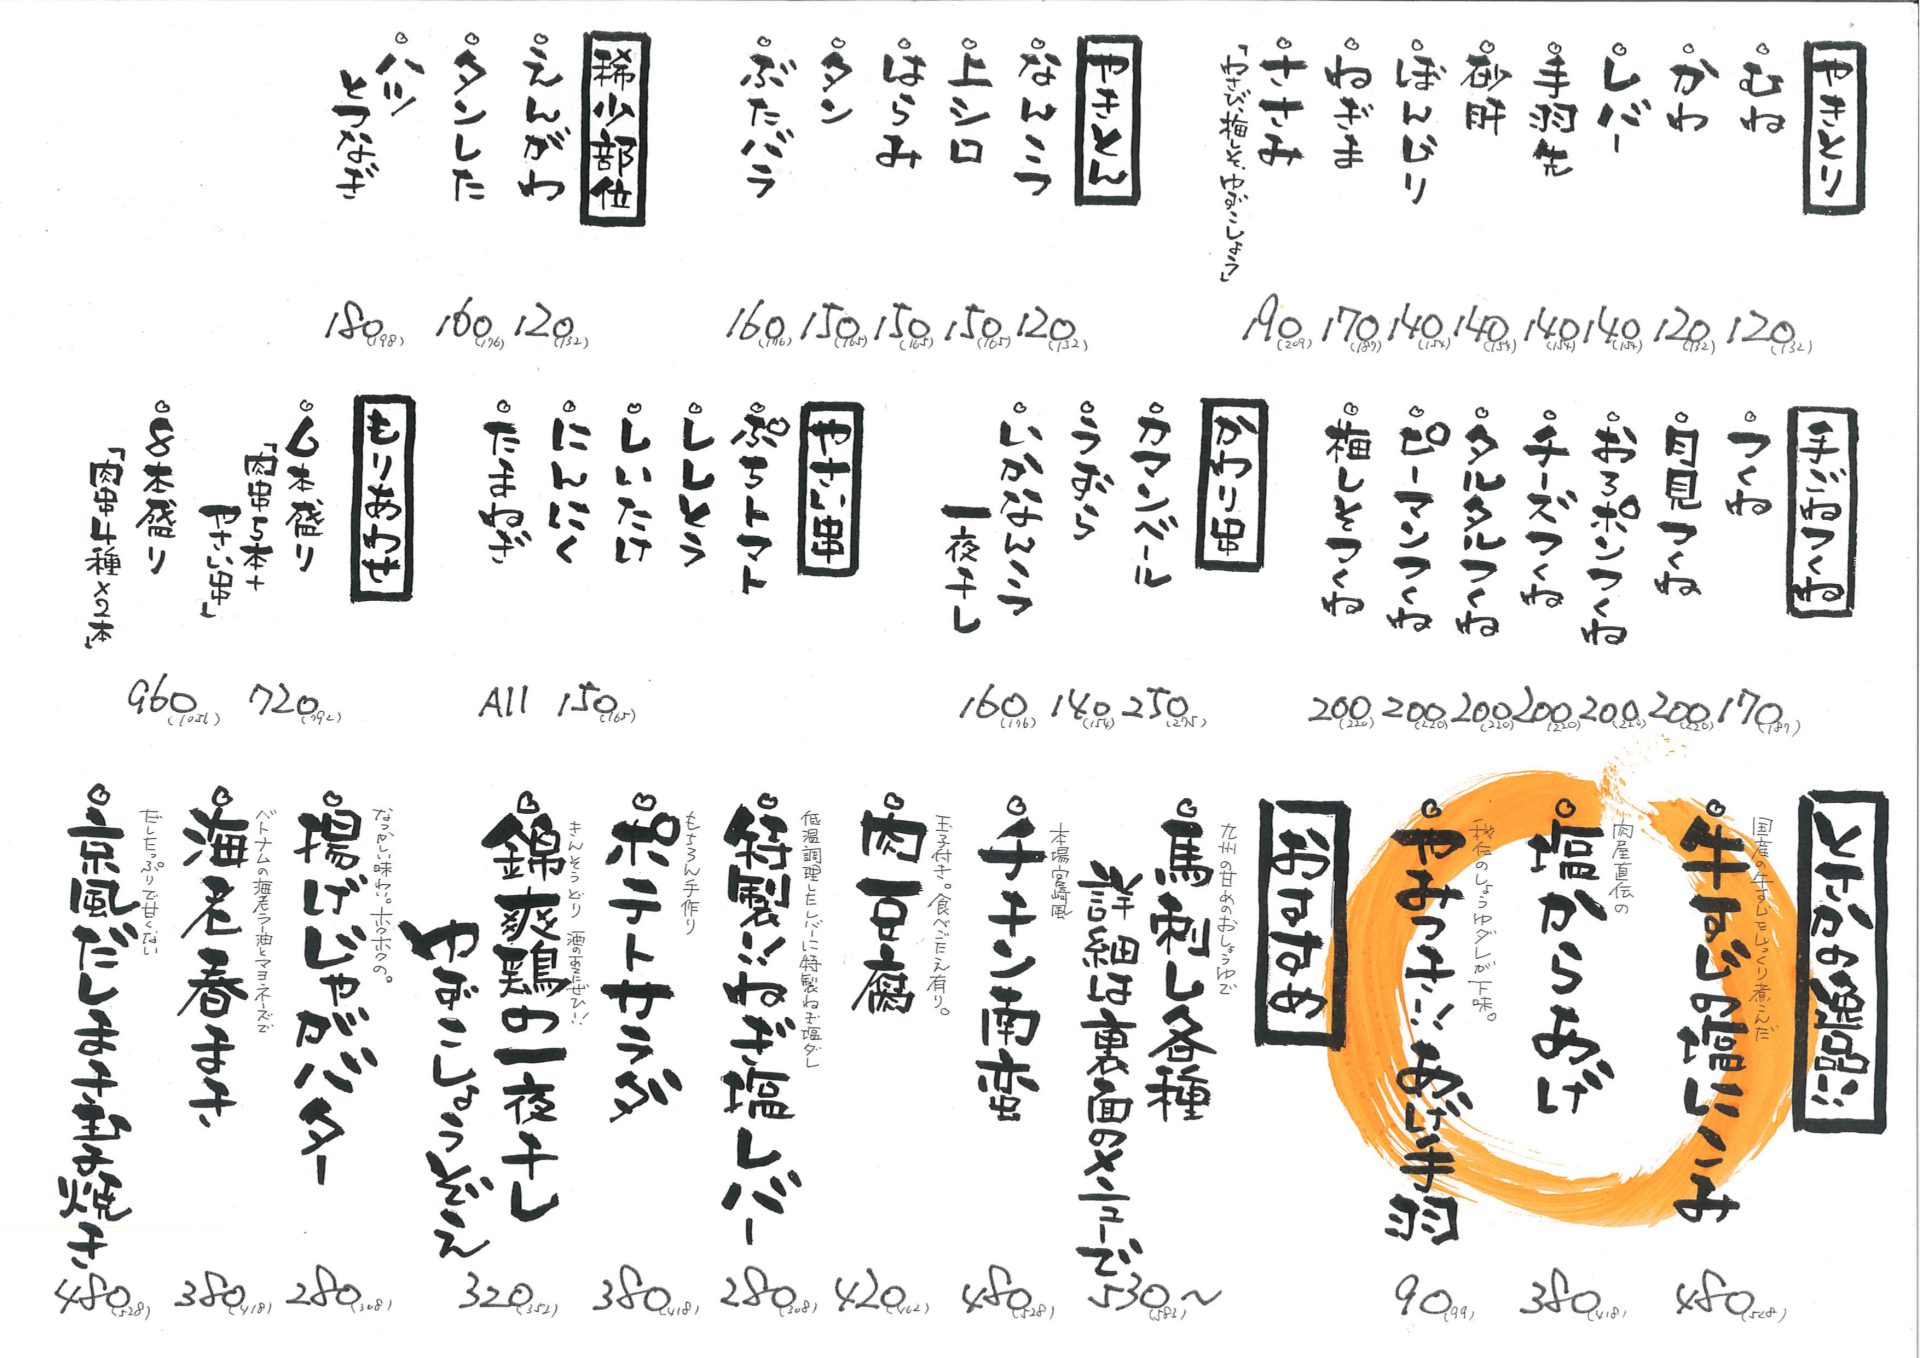 やきとり
むね
120(132)
かわ
120(132)
レバー
140(154)
手羽先
140(154)
砂肝
140(154)
ぼんじり
140(154)
ねぎま
170(187)
ささみ
「わさび、梅しそ、ゆずこしょう」
190(209)
やきとん
なんこつ
120(132)
上シロ
150(165)
はらみ
150(165)
タン
150(165)
ぶたバラ
160(176)
稀少部位
えんがわ
120(132)
タンした
160(176)
ハツ
とつなぎ
180(198)
手ごねつくね
つくね
170(187)
月見つくね
200(220)
おろポンつくね
200(220)
チーズつくね
200(220)
タルタルつくね
200(220)
ピーマンつくね
200(220)
梅しそつくね
200(220)
かわり串
カマンベール
250(275)
うずら
140(154)
いかなんこつ
一夜干し
160(176)
やさい串
ぷちトマト
ししとう
しいたけ
にんにく
たまねぎ
All 150(165)
もりあわせ
6本盛り
「肉串5本+
やさい串」
720(792)
8本盛り
「肉串4種×2本」
960(1056)
とさかの逸品!!
国産の牛すじをじっくり煮こんだ
牛すじの塩にこみ
480(528)
肉屋直伝の
塩からあげ
380(418)
秘伝のしょうゆダレが下味。
やみつき!!あげ手羽
90(99)
おすすめ
九州の甘めのおしょうゆで
馬刺し各種
詳細は裏面のメニューで
530(583)~
本場宮崎風
チキン南蛮
480(528)
玉子付き。食べごたえ有り。
肉豆腐
420(462)
低温調理したレバーに特製ねぎ塩ダレ
特製!!ねぎ塩レバー
280(308)
もちろん手作り
ポテトサラダ
380(418)
きんそうどり 酒のあてにぜひ!!
錦爽鶏の一夜干し
ゆずこしょうぞえ
320(352)
なつかしい味わい。ホクホクの。
揚げじゃがバター
280(308)
ベトナムの海老ラー油とマヨネーズで
海老春まき
380(418)
だしたっぷりで甘くない
京風だしまき玉子焼き
480(528)